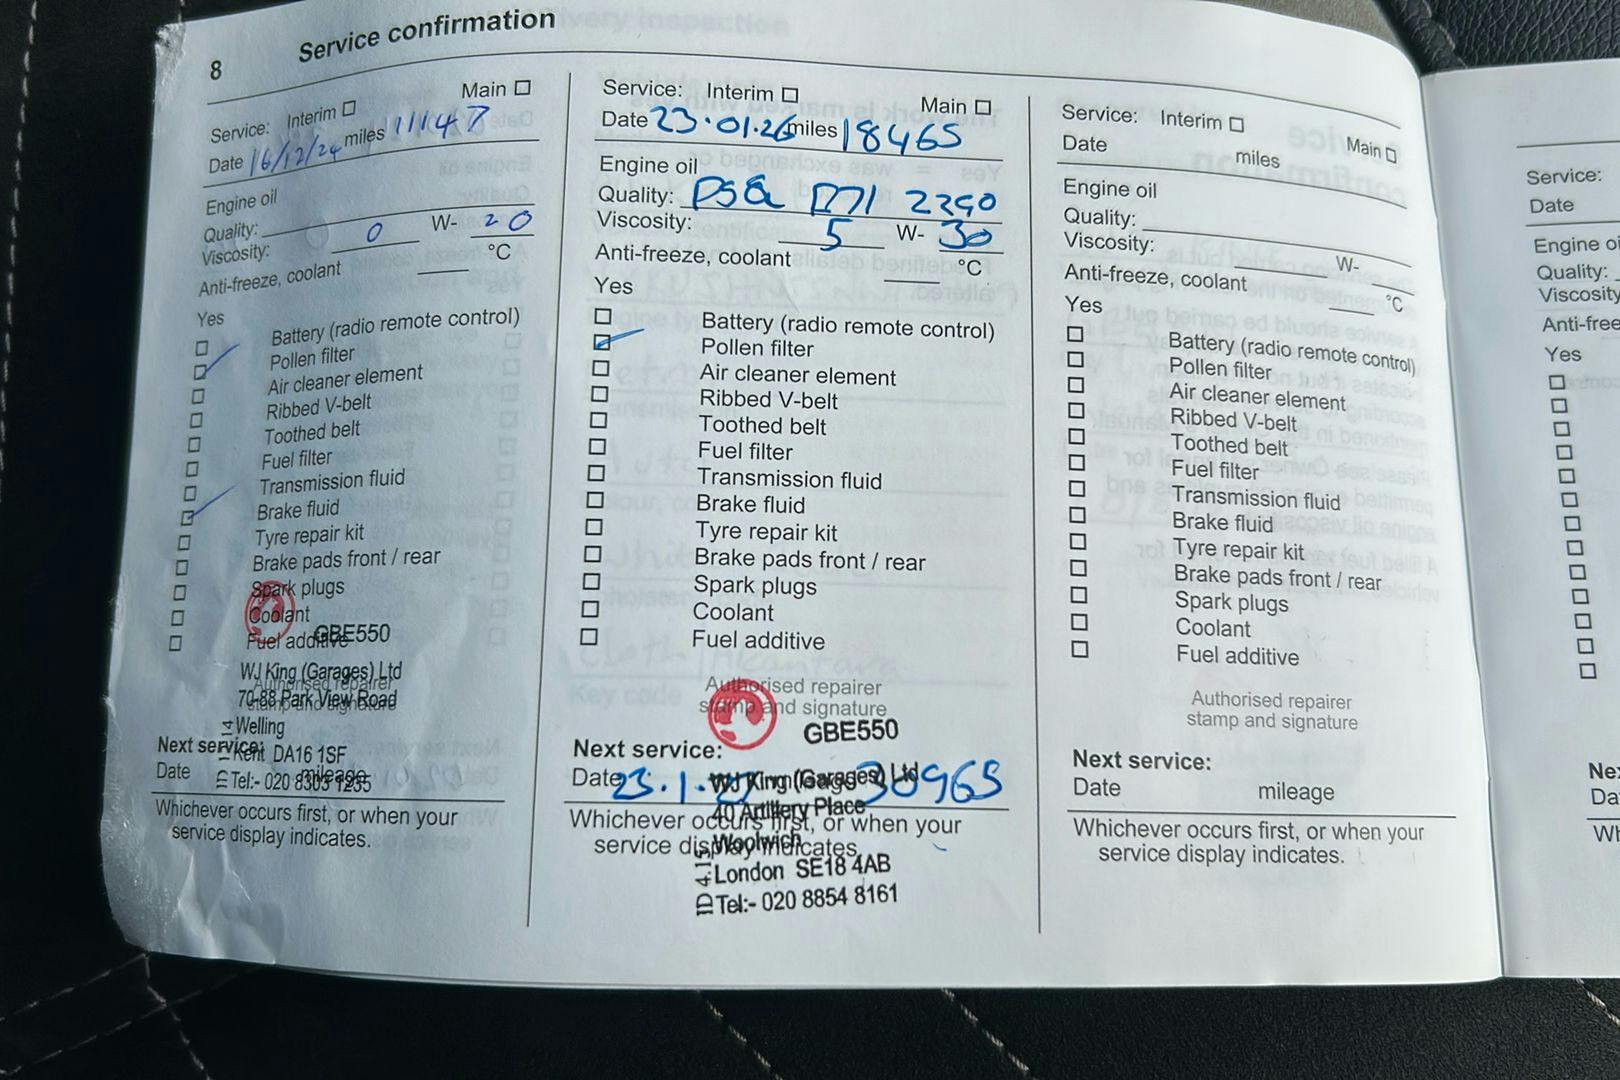 8 Service confirmation
Service: Interim Main
Date 16/12/24 miles 11147
Engine oil
Quality:
Viscosity: 0 W- 20
Anti-freeze, coolant °C
Yes
Battery (radio remote control)
Pollen filter
Air cleaner element
Ribbed V-belt
Toothed belt
Fuel filter
Transmission fluid
Brake fluid
Tyre repair kit
Brake pads front / rear
Spark plugs
Coolant
Fuel additive
GBE550
WJ King (Garages) Ltd
Authorised repairer
70-88 Park View Road
stamp and signature
Welling
Next service:
Kent DA16 1SF
Date mileage
Tel:- 020 8303 1235
Whichever occurs first, or when your
service display indicates.
Service: Interim Main
Date 23.01.26 miles 18465
Engine oil
Quality: PSA B71 2290
Viscosity: 5 W- 30
Anti-freeze, coolant °C
Yes
Battery (radio remote control)
Pollen filter
Air cleaner element
Ribbed V-belt
Toothed belt
Fuel filter
Transmission fluid
Brake fluid
Tyre repair kit
Brake pads front / rear
Spark plugs
Coolant
Fuel additive
Authorised repairer
stamp and signature
GBE550
Next service:
Date 23.1.27 mileage 30965
WJ King (Garages) Ltd
40 Artillery Place
Whichever occurs first, or when your
Woolwich
service display indicates.
London SE18 4AB
Tel:- 020 8854 8161
Service: Interim Main
Date miles
Engine oil
Quality:
Viscosity: W-
Anti-freeze, coolant °C
Yes
Battery (radio remote control)
Pollen filter
Air cleaner element
Ribbed V-belt
Toothed belt
Fuel filter
Transmission fluid
Brake fluid
Tyre repair kit
Brake pads front / rear
Spark plugs
Coolant
Fuel additive
Authorised repairer
stamp and signature
Next service:
Date mileage
Whichever occurs first, or when your
service display indicates.
Service:
Date
Engine oi
Quality:
Viscosity
Anti-free
Yes
Ne
Da
Wh